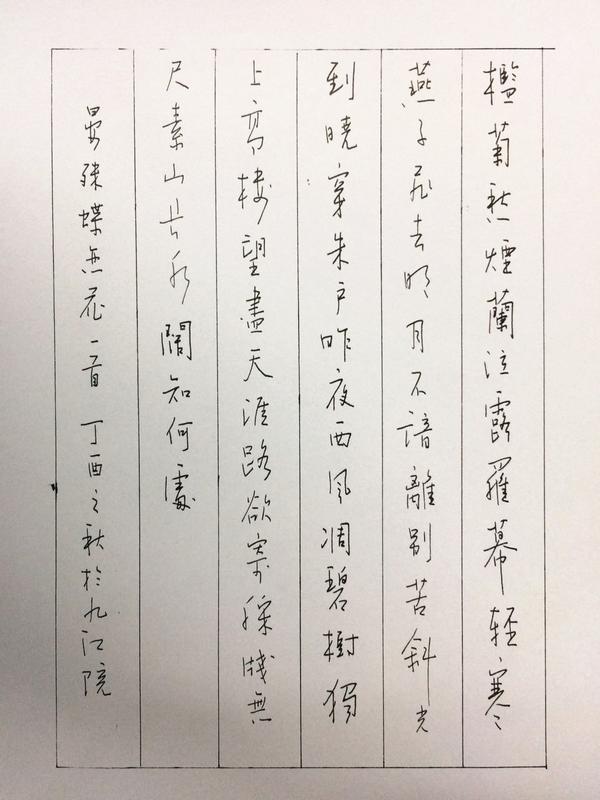 檻菊愁煙蘭泣露羅幕輕寒
燕子飛去明月不諳離別苦斜光
到曉穿朱戶昨夜西風凋碧樹獨
上高樓望盡天涯路欲寄綵牋無
尺素山長水闊知何處
晏殊蝶恋花一首 丁酉之秋於九江院